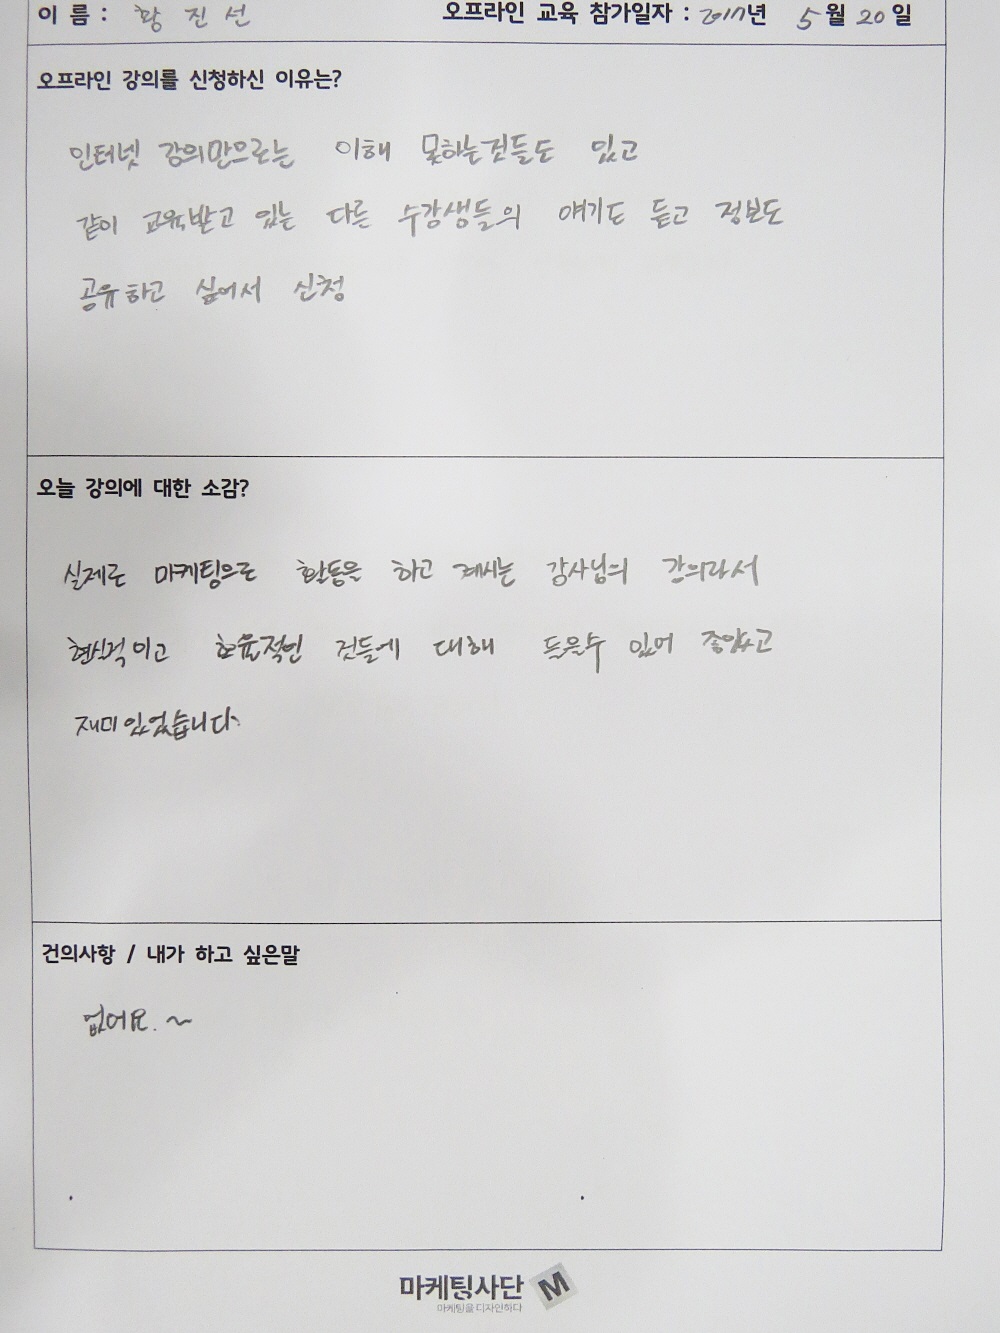 이 름 : 황 진 선 오프라인 교육 참가일자 : 2017년 5월 20일
오프라인 강의를 신청하신 이유는?
인터넷 강의만으로는 이해 못하는것들도 있고
같이 교육받고 있는 다른 수강생들의 얘기도 듣고 정보도
공유하고 싶어서 신청
오늘 강의에 대한 소감?
실제로 마케팅으로 활동을 하고 계시는 강사님의 강의라서
현실적이고 효율적인 것들에 대해 들을수 있어 좋았고
재미있었습니다.
건의사항 / 내가 하고 싶은말
없어요. ~
마케팅사단 M
마케팅을 디자인하다